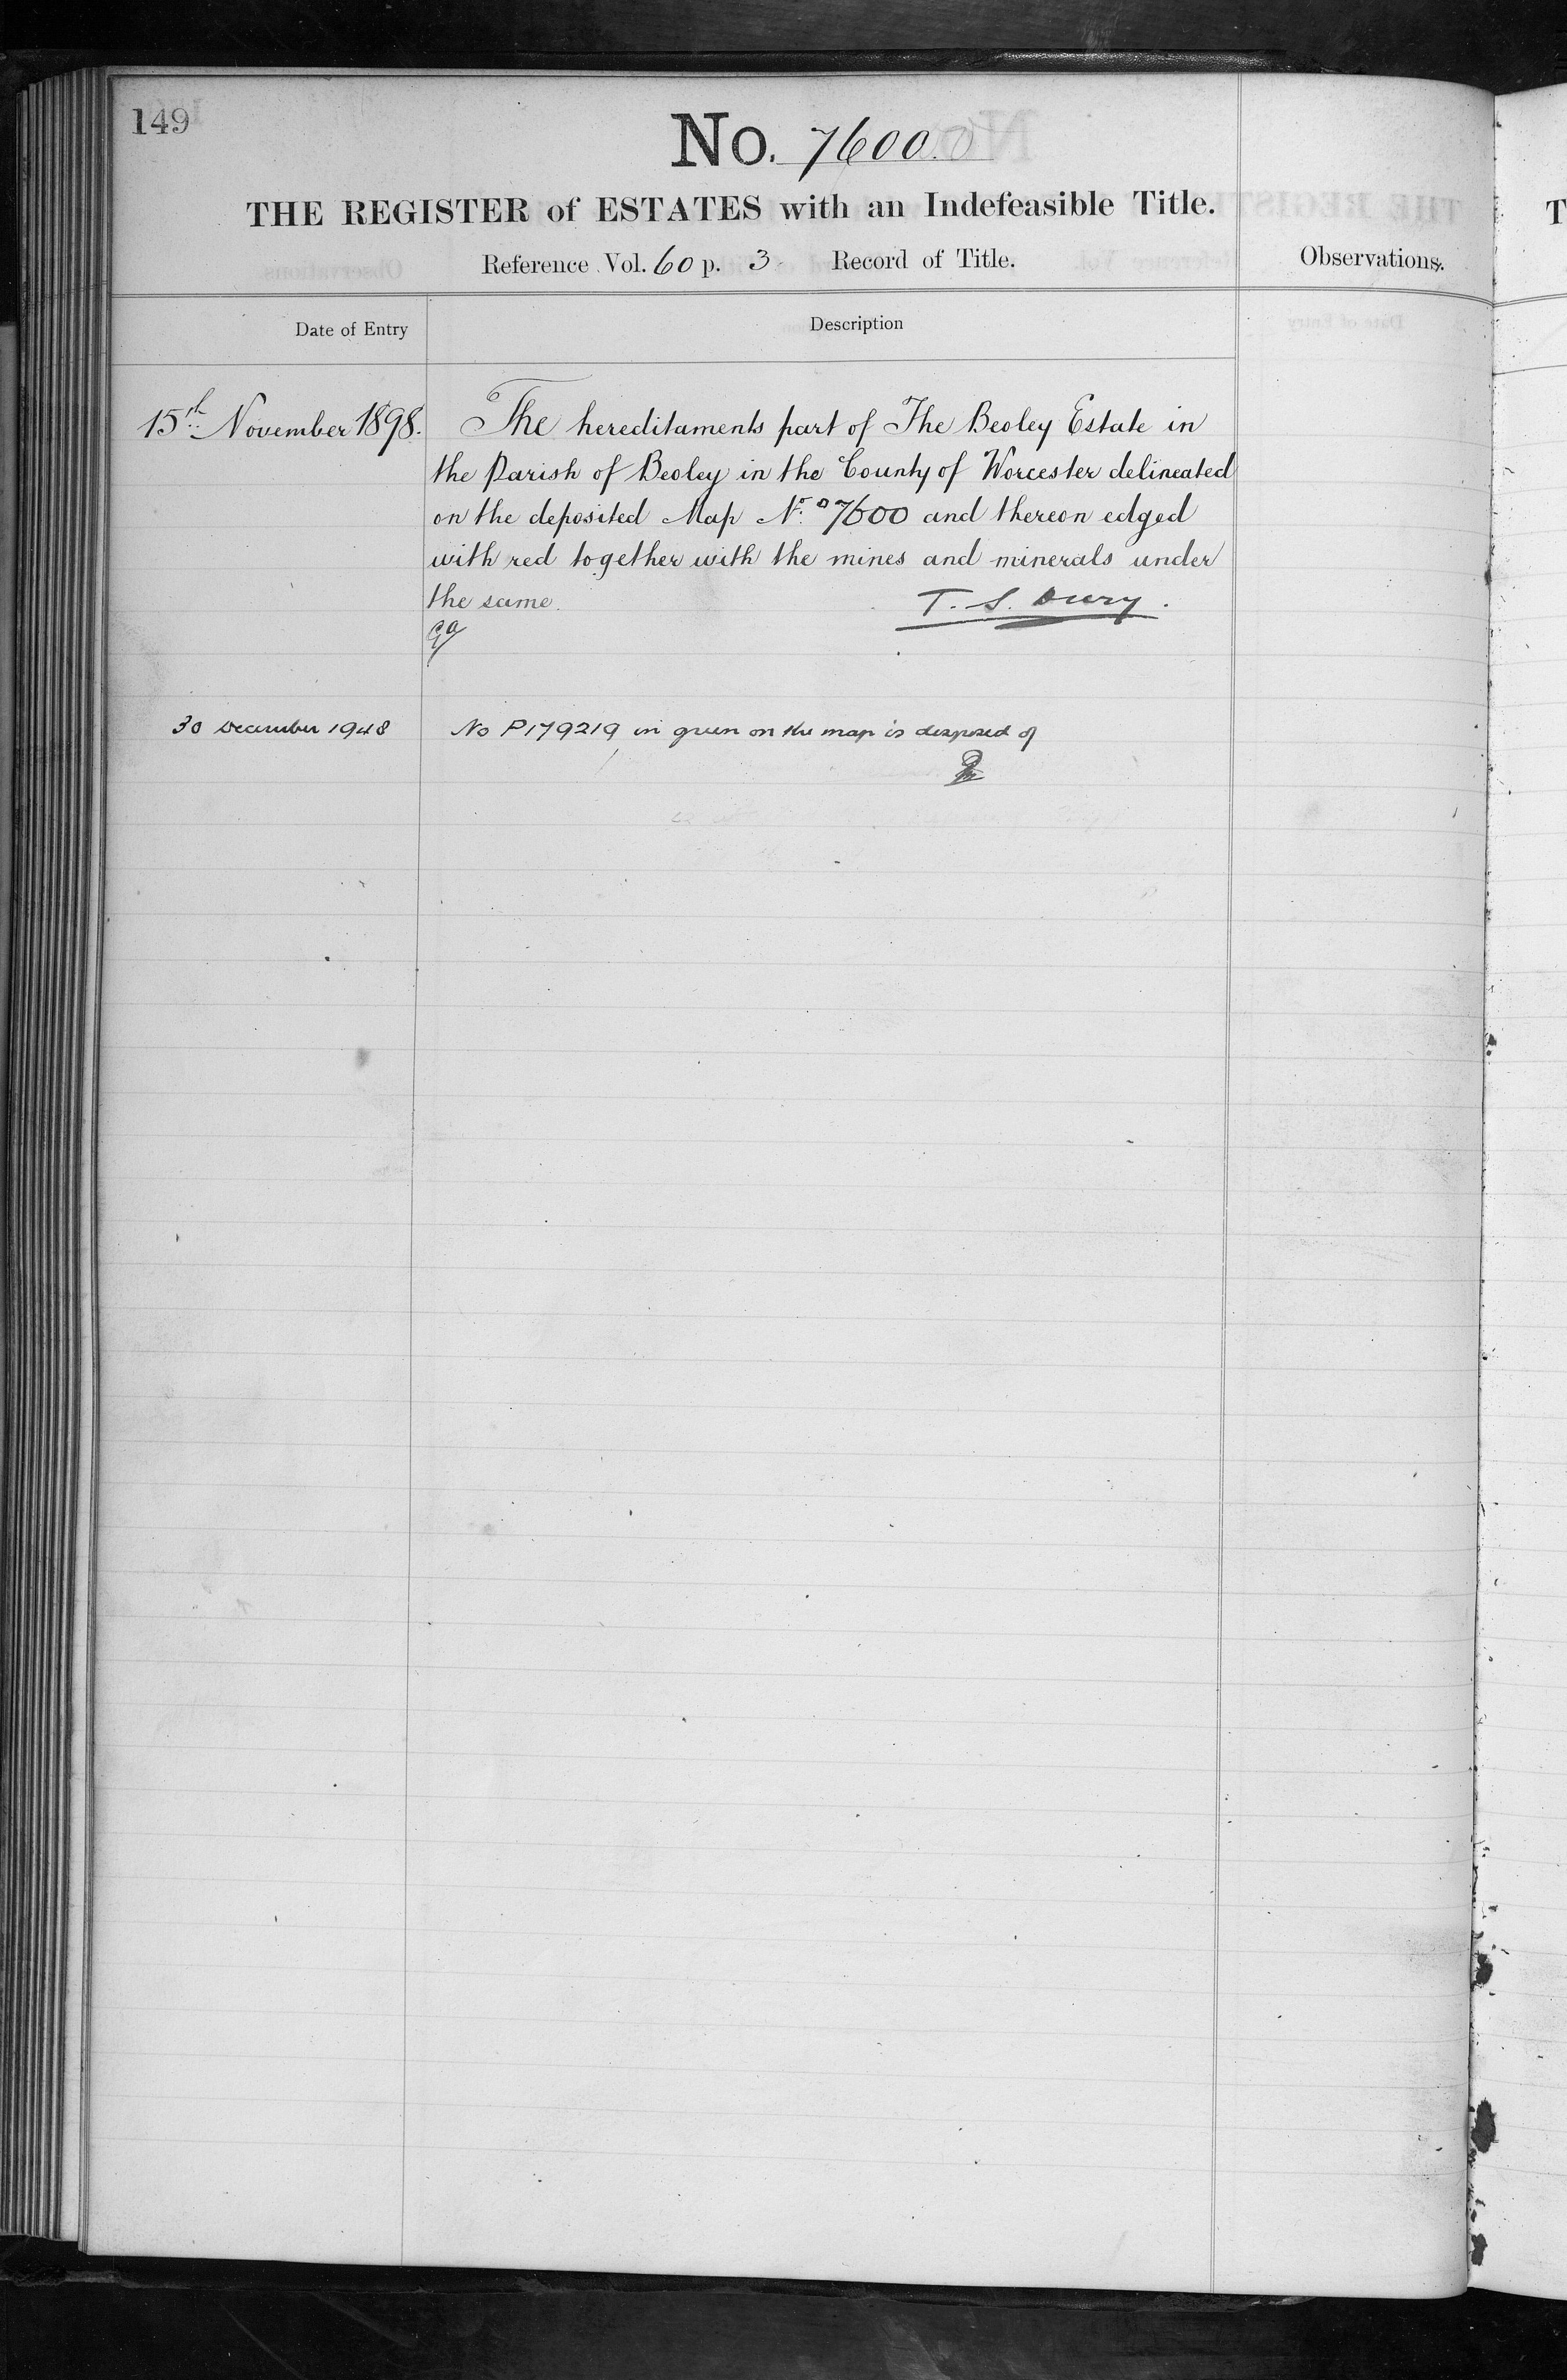 149
No. 7600.
THE REGISTER of ESTATES with an Indefeasible Title.
Reference Vol. 60 p. 3 Record of Title.
Observations.
Date of Entry
Description
15th November 1898.
The hereditaments part of The Beoley Estate in
the Parish of Beoley in the County of Worcester delineated
on the deposited Map No. 7600 and thereon edged
with red together with the mines and minerals under
the same.
T. S. Dury.
30 December 1948
No P179219 in green on the map is disposed of
T